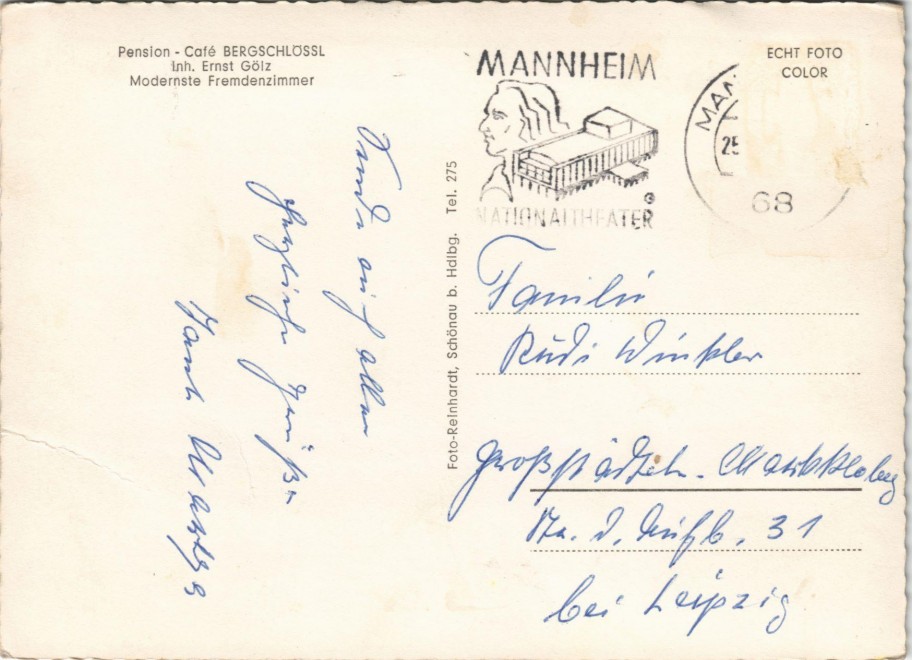 Pension - Café BERGSCHLÖSSL
Inh. Ernst Gölz
Modernste Fremdenzimmer
Sende euch allen
herzliche Grüße
Tante
Foto-Reinhardt, Schönau b. Hdlbg. Tel. 275
MANNHEIM
NATIONALTHEATER
MAN
25
68
ECHT FOTO
COLOR
Familie
Rudi Winkler
Großstädteln-Markkleeberg
Str. d. 31
bei Leipzig